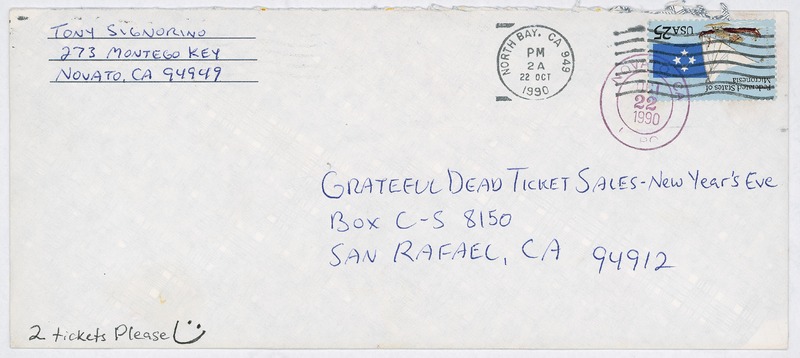 TONY SIGNORINO
273 MONTEGO KEY
NOVATO, CA 94949
NORTH BAY, CA 949
PM
2A
22 OCT
1990
USA25
Federated States of
Micronesia
NOVATO
22
1990
GRATEFUL DEAD TICKET SALES-New Year's Eve
BOX C-S 8150
SAN RAFAEL, CA 94912
2 tickets Please